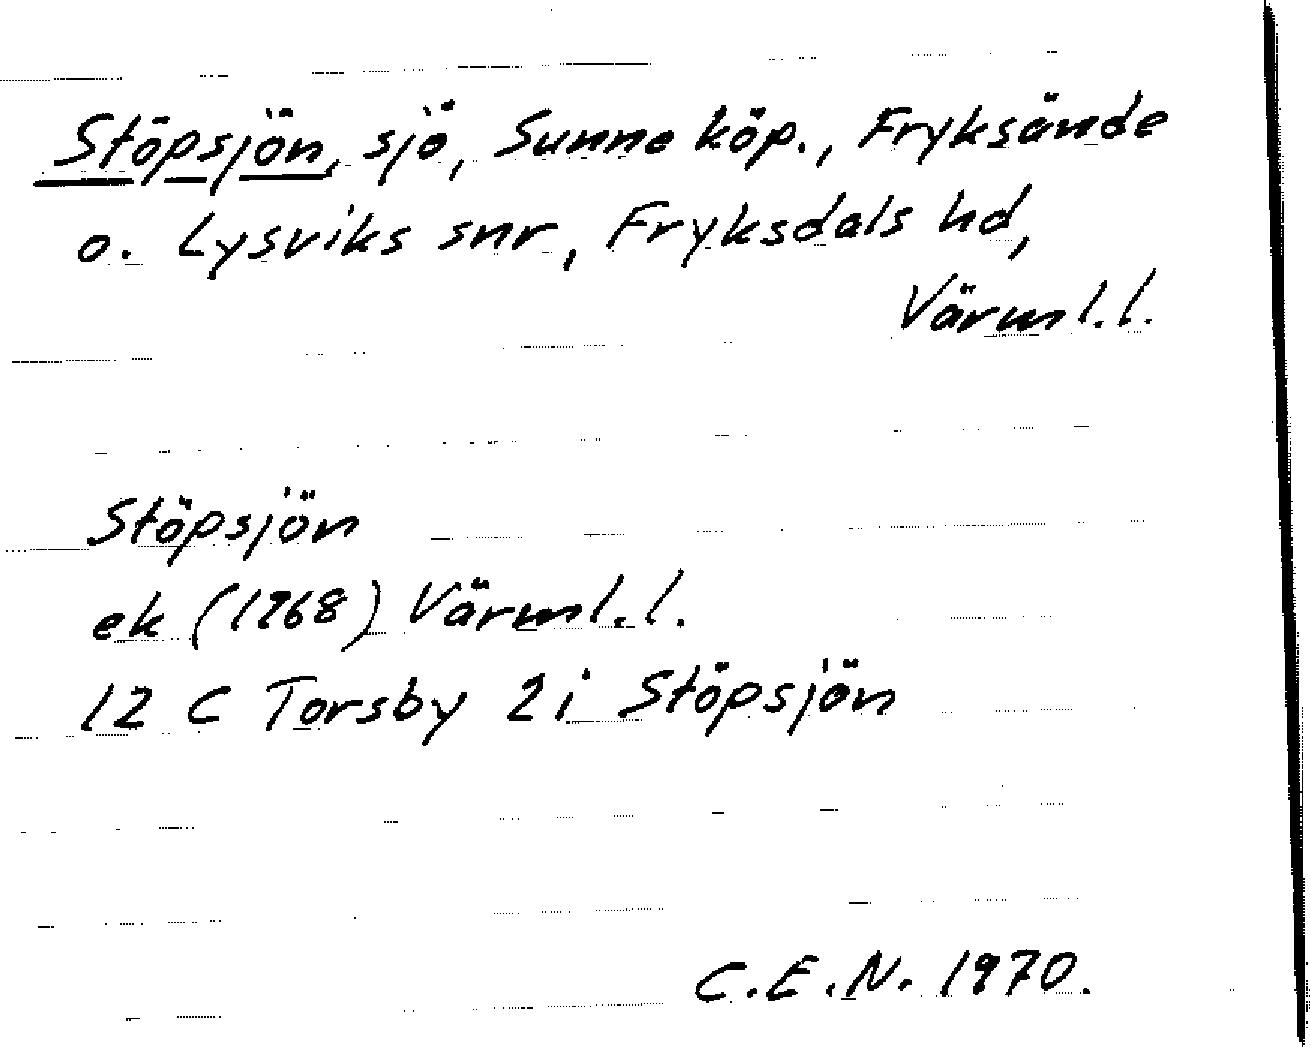 Stöpsjön, sjö, Sunne köp., Fryksände
o. Lysviks snr, Fryksdals hd,
Värml.l.
Stöpsjön
ek (1968) Värml.l.
12 C Torsby 2i Stöpsjön
C.E.N. 1970.